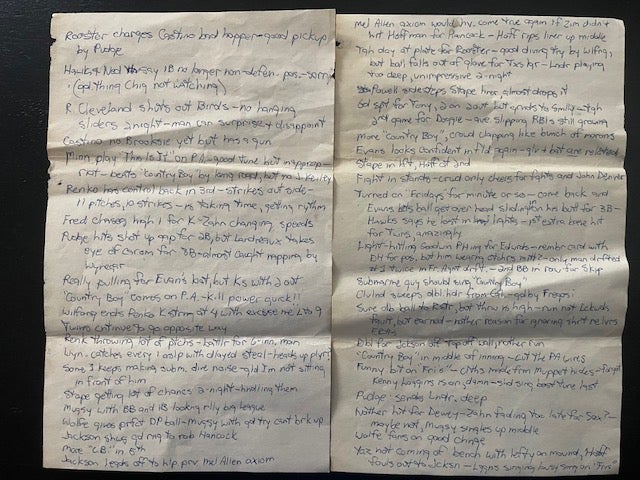 Rooster charges Castino bad hopper - good pickup
by Pudge
Hawks & Ned say 1B no longer non-defen. pos. - sorry
(good thing Chig not watching)
R. Cleveland shuts out Birds - no hanging
sliders 2night - man can surprise & disappoint
Castino no Brooksie yet but has a gun
Minn play "This Is It" on P.A. - good tune but inapprop-
riat - beats "Country Boy" by long road, but no
Renko has control back in 3rd - strikes out side -
11 pitches, 10 strikes - is taking time, getting rythm
Fred chases high 1 for K - Zahn changing speeds
Pudge hits shot up gap for 2B, but Landreaux takes
eye of Coram for 3B - almost caught napping by
Wynegar
Really pulling for Evan's bat, but Ks with 2 out
"Country Boy" comes on P.A. - Kill power quick!!
Wilfong ends Renko K string at 4 with excuse me L to 9
Twins continue to go opposite way
Renk throwing lot of pitchs - battle for 6-inn. man
Wyn - catches every 1 aslp with dlayed steal - heads up plyr
Some 1 keeps making subm. dive noise - gld I'm not sitting
in front of him
Stape getting lot of chances 2-night - handling them
Mugsy with BB and HB looking rlly big league
Wolfe gives prfct DP ball - Mugsy with gd try cant brk up
Jackson shws gd rng to rob Hancock
More "CB" in 5th
Jackson leads off to hlp prv Mel Allen axiom
Mel Allen axiom would hv. come true again if Zim didn't
hit Hoffman for Hancock - Hoff rips liner up middle
Tgh day at plate for Rooster - good diving try by Wilfng,
but ball falls out of glove for Txs lgr - Lndr playing
too deep, unimpressive 2-night
Powell sidesteps Stape hror, almost drops it
Gd spt for Tony, 2 on 2 out but grnds to Smaly - tgh
2rd game for Doggie - ave. slipping RBIs still growing
More "Country Boy", crowd clapping like bunch of morons
Evans looks confident in fld again - glv & bat are related
Stape in 1st, Hoff at 2nd
Fight in stands - crwd only cheers for fights and John Denver
Turned on 'Fridays' for minute or so - come back and
Evans hits ball get over head sliding on his butt for 3B -
Hawks says he lost in lights - 1st extra base hit
for Twins, amazingly
Light-hitting Goodwin PHing for Edwrds - rembr card with
DH for pos. but him wearing ctchrs mitt - only man drfted
#1 twice in Fr. Agnt drft. - 2nd BB in row for Skip
Submarine guy should sing "Country Boy"
Clvlnd sweeps dbl hdr from Cal - gdboy Fregosi
Sure dbl ball to Rstr, but thrw is high - run not Leckwds
fault, but earned - nother reason for ignoring shrt relvrs
ERAs
Dbl for Jckson off top of ball, nother run
"Country Boy" in middle of inning - cut the PA wires
Funny bit on Fri's - clths made from Muppet hides - forgot
Kenny Loggins is on, damn - slid sing bout tune last
Pudge sends Lndr. deep
Nother hit for Dewey - Zahn fading too late for Sox? -
maybe not, Mugsy singles up middle
Wolfe fans on good chnge
Yaz not coming of bench with lefty on mound, Hoff
fouls out to Jcksn - Lggns singing lousy sng on 'Fri's'